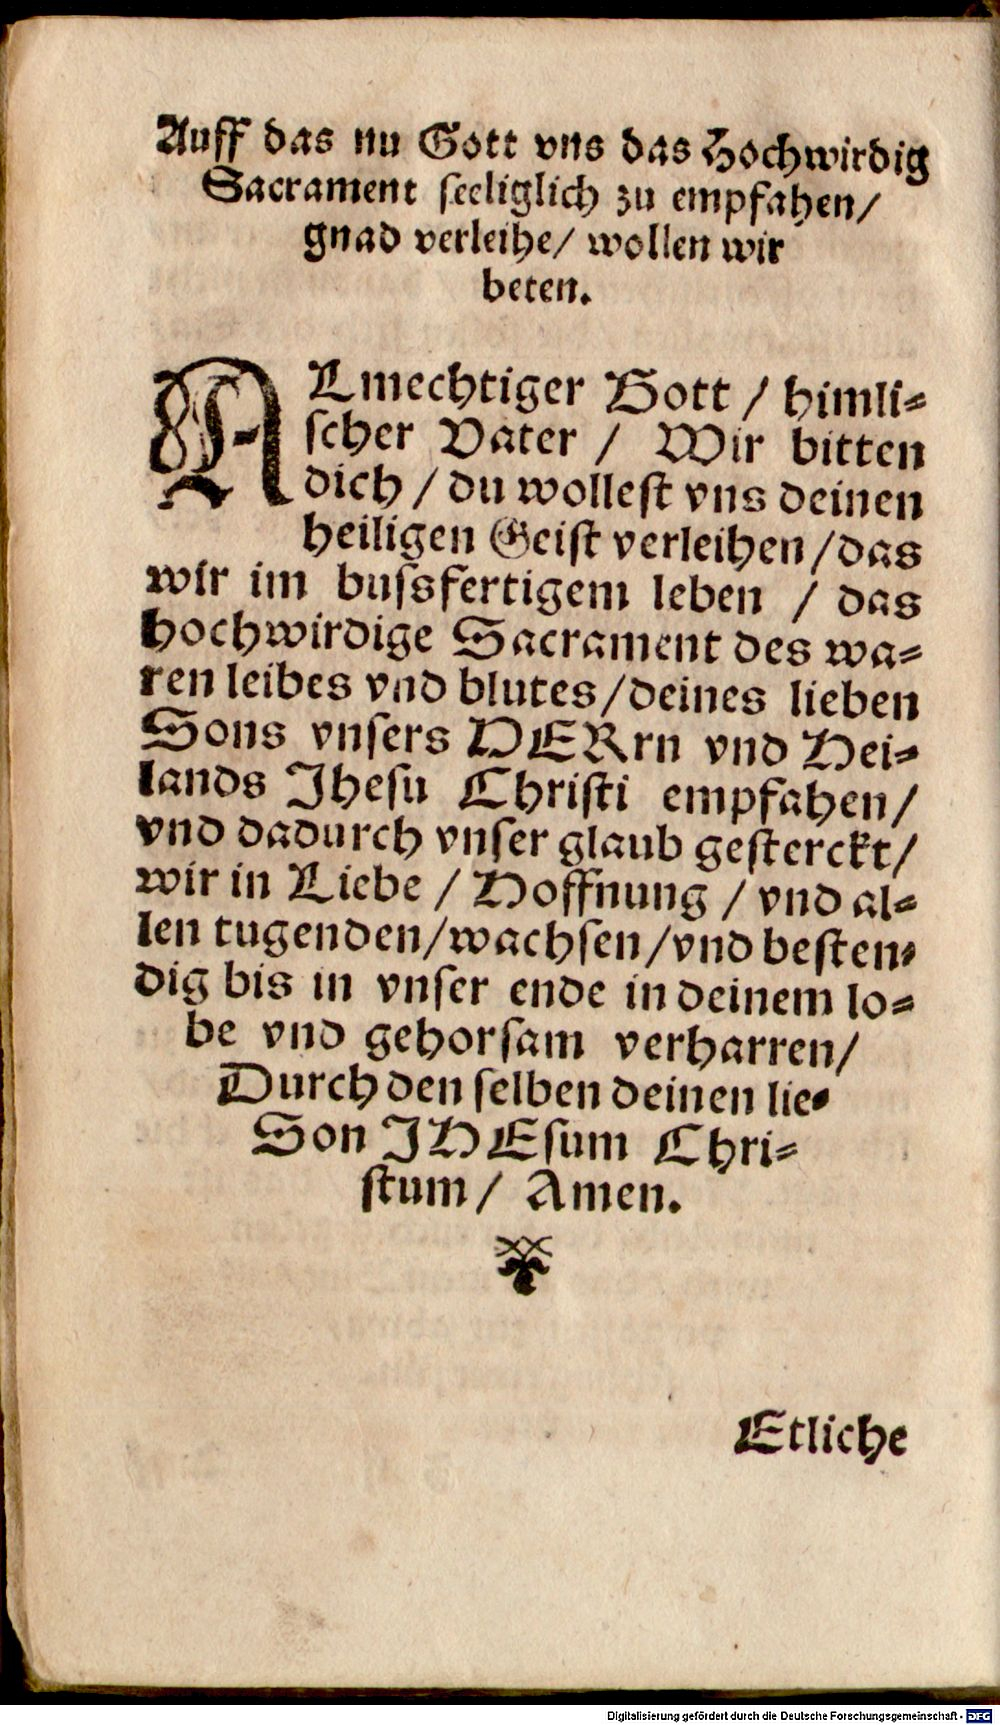 Auff das nu Gott vns das Hochwirdig
Sacrament seeliglich zu empfahen/
gnad verleihe/ wollen wir
beten.
ALmechtiger Gott / himli⸗
scher Vater / Wir bitten
dich / du wollest vns deinen
heiligen Geist verleihen /das
wir im bussfertigem leben / das
hochwirdige Sacrament des wa⸗
ren leibes vnd blutes /deines lieben
Sons vnsers HERrn vnd Hei⸗
lands Jhesu Christi empfahen/
vnd dadurch vnser glaub gesterckt/
wir in Liebe / Hoffnung / vnd al⸗
len tugenden/wachsen /vnd besten⸗
dig bis in vnser ende in deinem lo⸗
be vnd gehorsam verharren/
Durch den selben deinen lie⸗
Son JHEsum Chri⸗
stum/ Amen.
Etliche
Digitalisierung gefördert durch die Deutsche Forschungsgemeinschaft - DFG